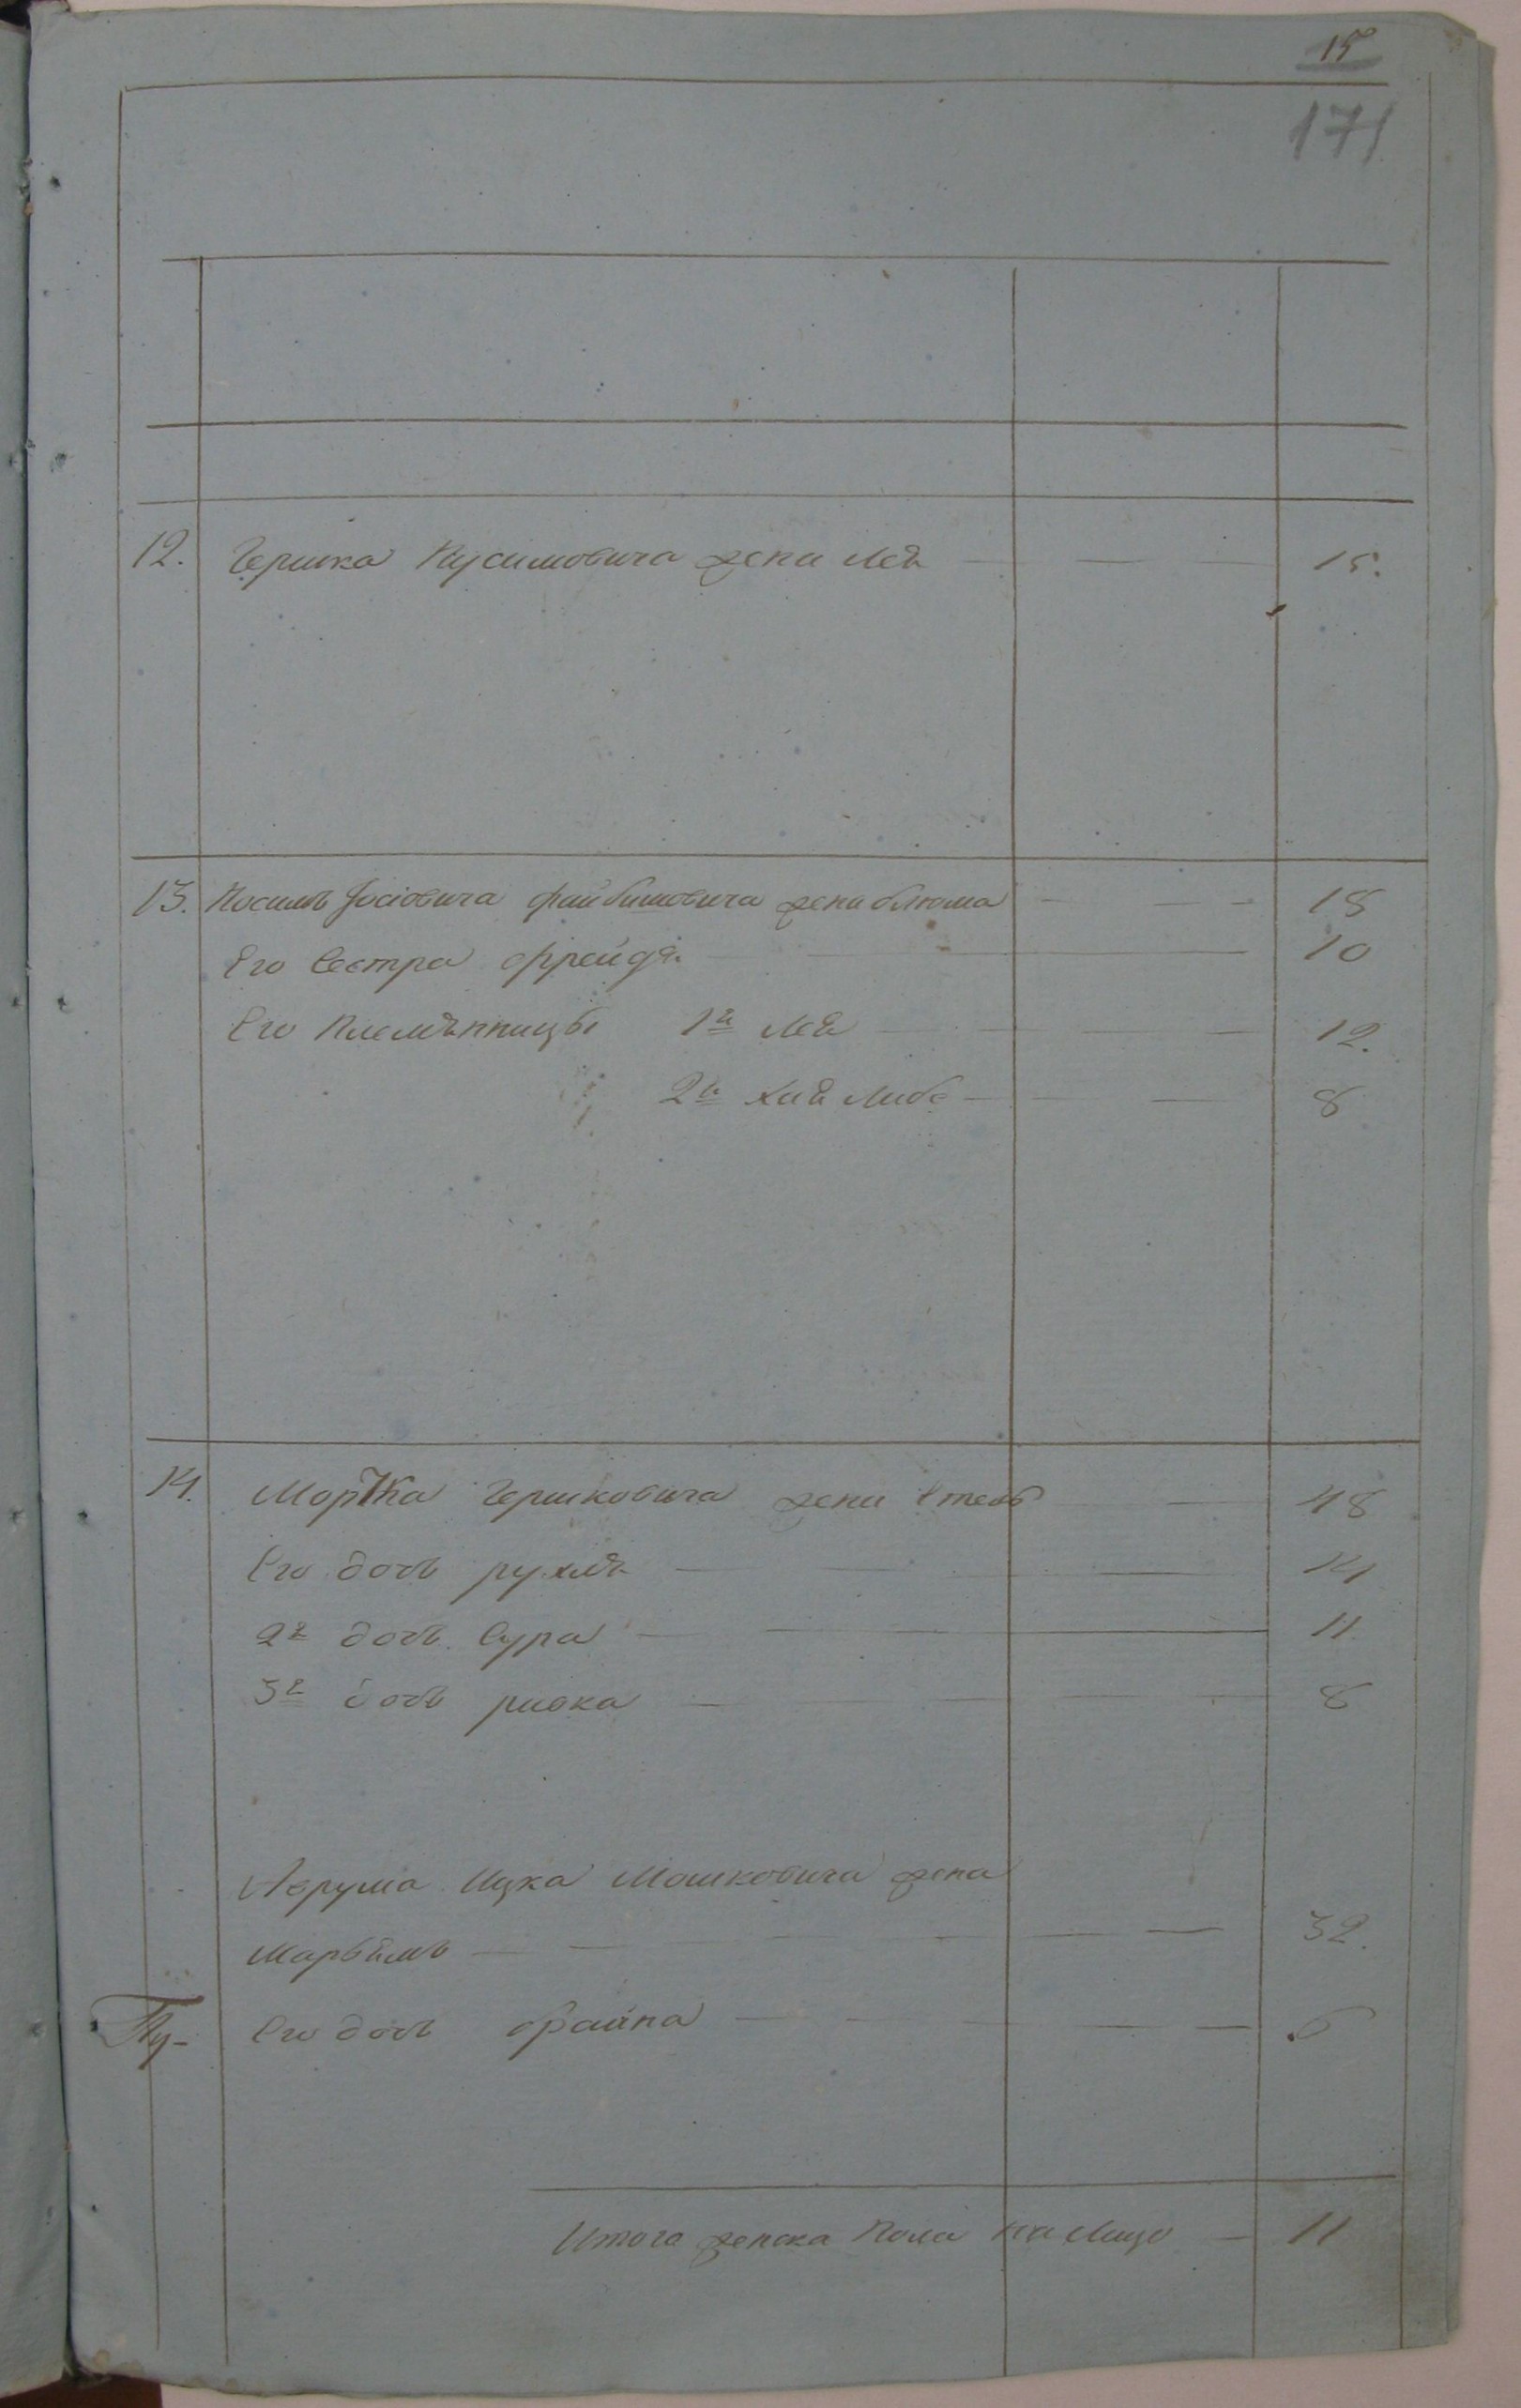 15
171
12. Гершка Нусимовича жена Лея 15.
13. Носимъ Іосіовича файбишовича жена блюма 18
Его Сестра фрейда 10
Его Племѣнницы 1я Лея 12.
2я хая Либа 8
14. Мортка Гершковича жена Стеоъ 48
Его дочь рухля 14
2я дочь Сура 11
3я дочь ривка 8
Аврума Ицка Мошковича жена
Марьямъ 32.
Его дочь фрайна 6
Итого женска Пола на Лицо 11